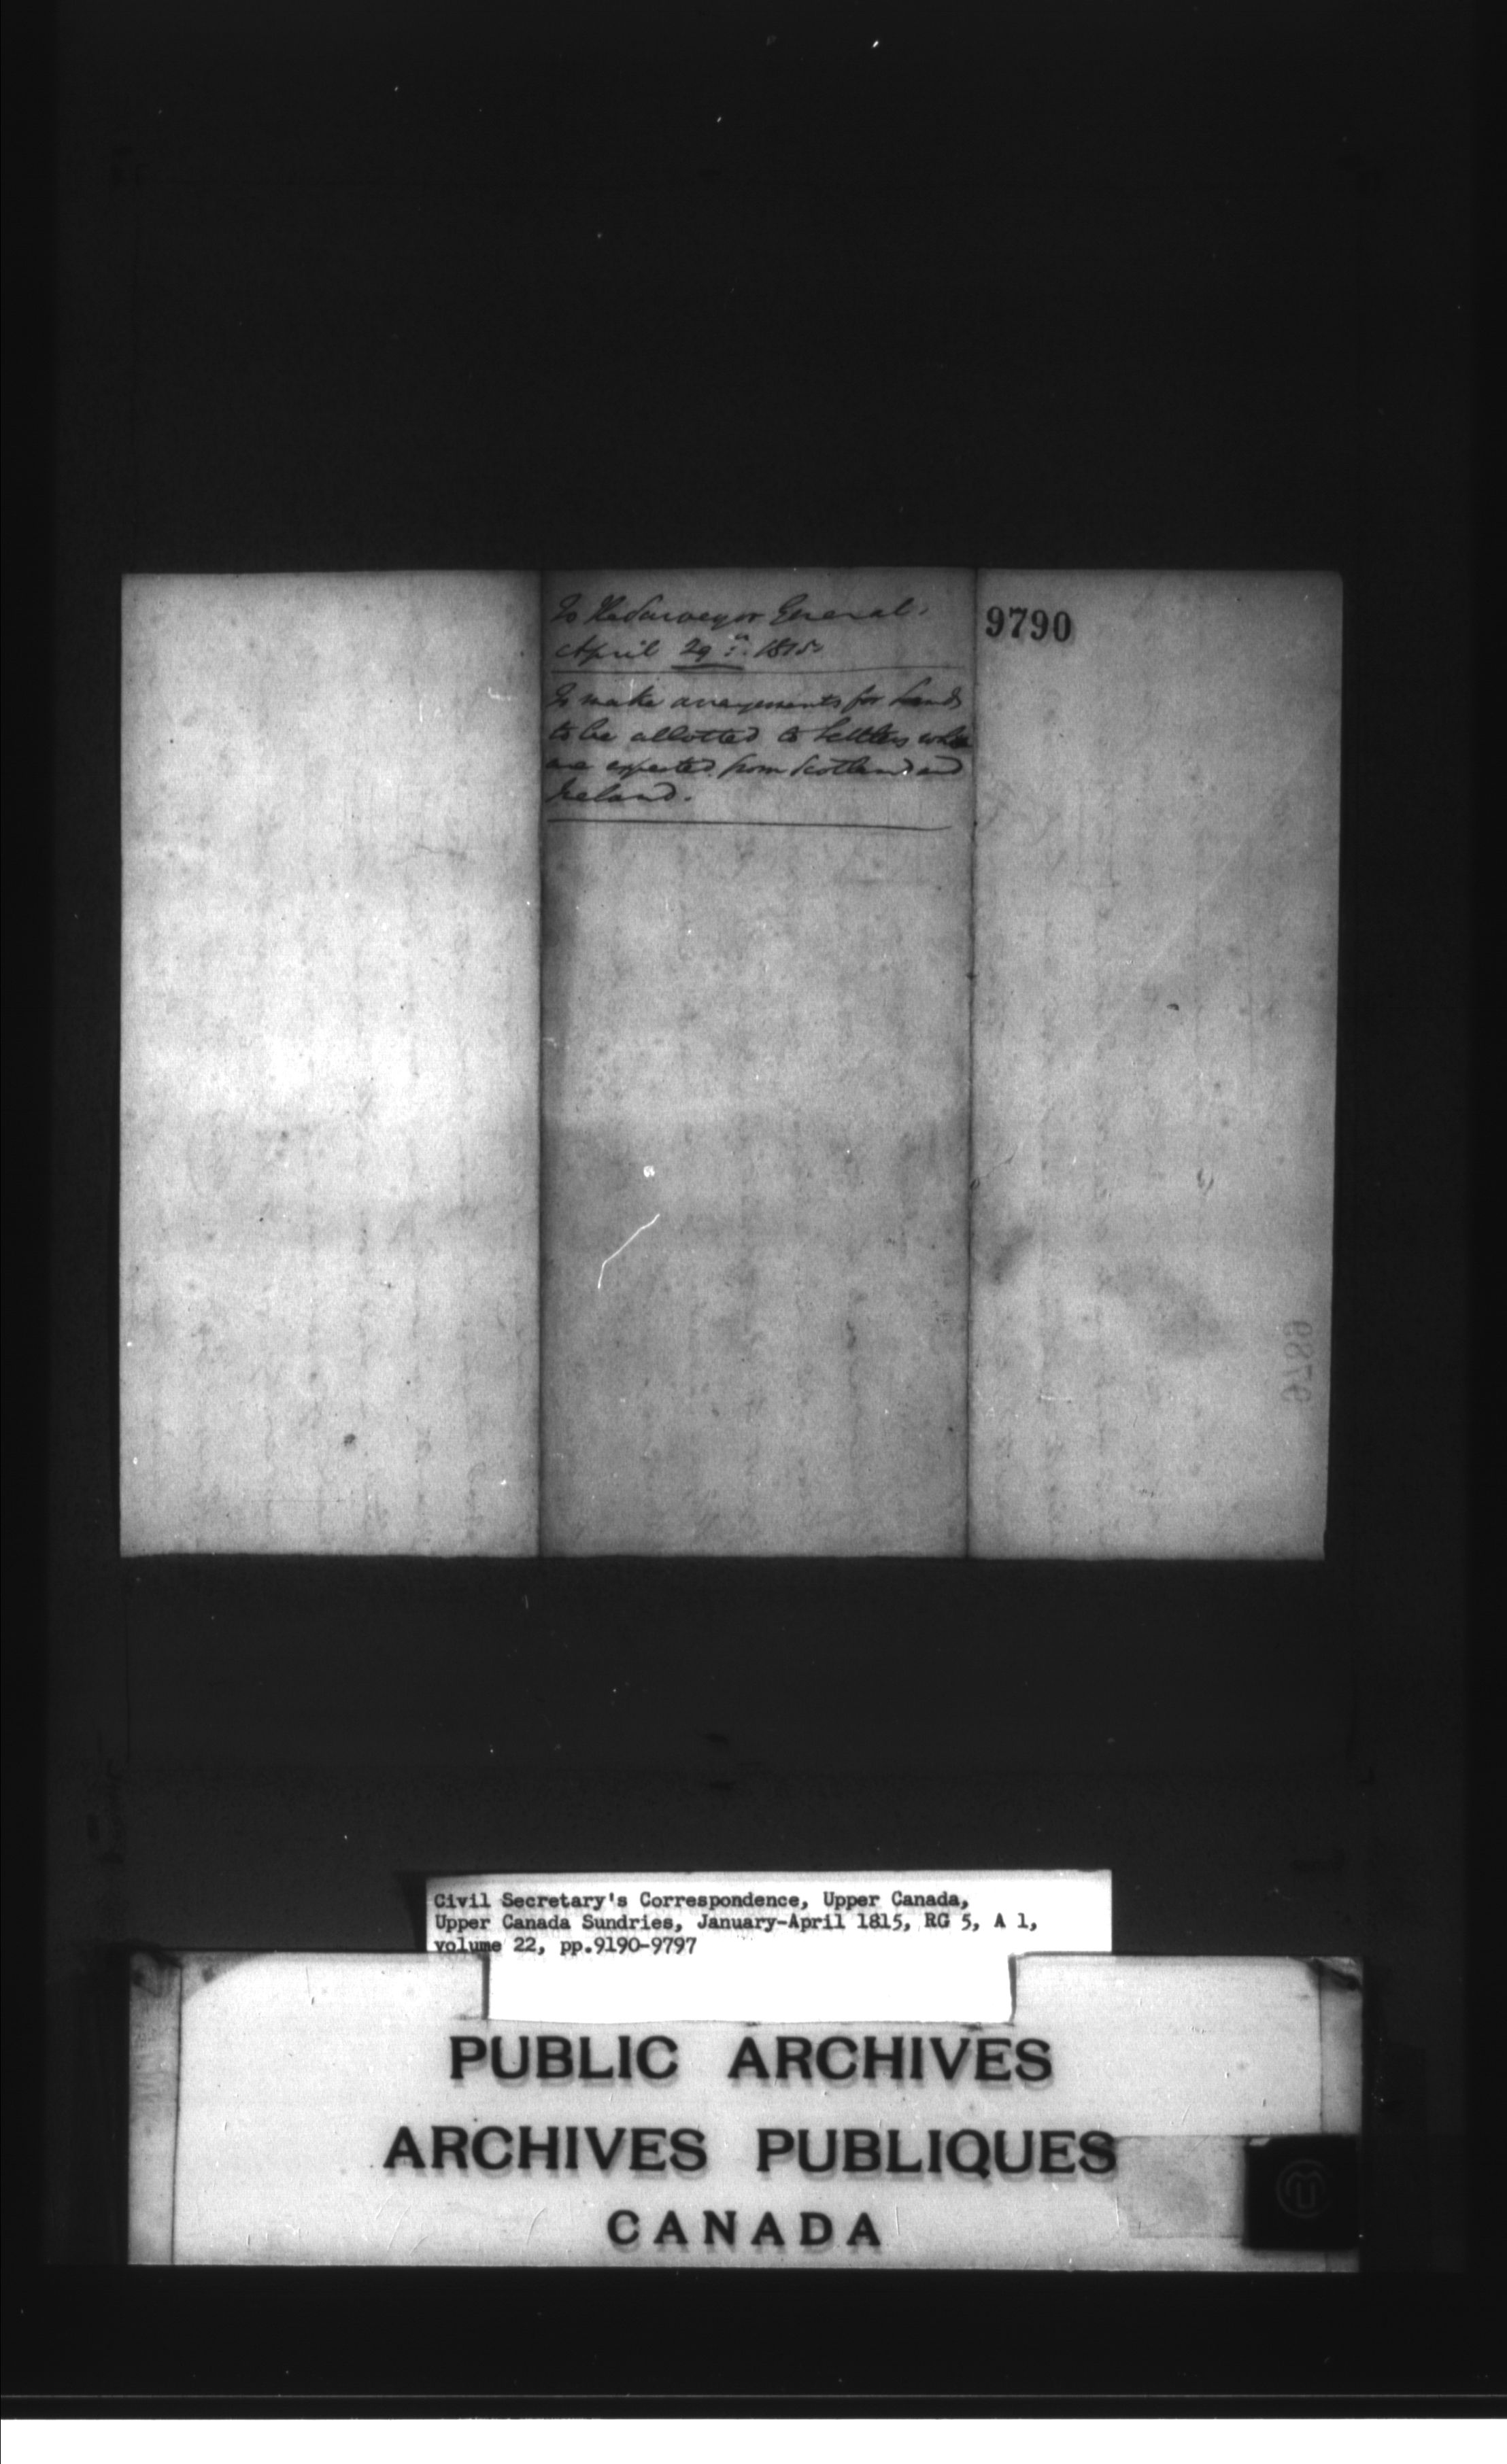 To the Surveyor General,
April 29th. 1815.
To make arrangements for Lands
to be allotted to Settlers who
are expected from Scotland and
Ireland.
9790
9789
Civil Secretary's Correspondence, Upper Canada,
Upper Canada Sundries, January-April 1815, RG 5, A 1,
volume 22, pp.9190-9797
PUBLIC ARCHIVES
ARCHIVES PUBLIQUES
CANADA